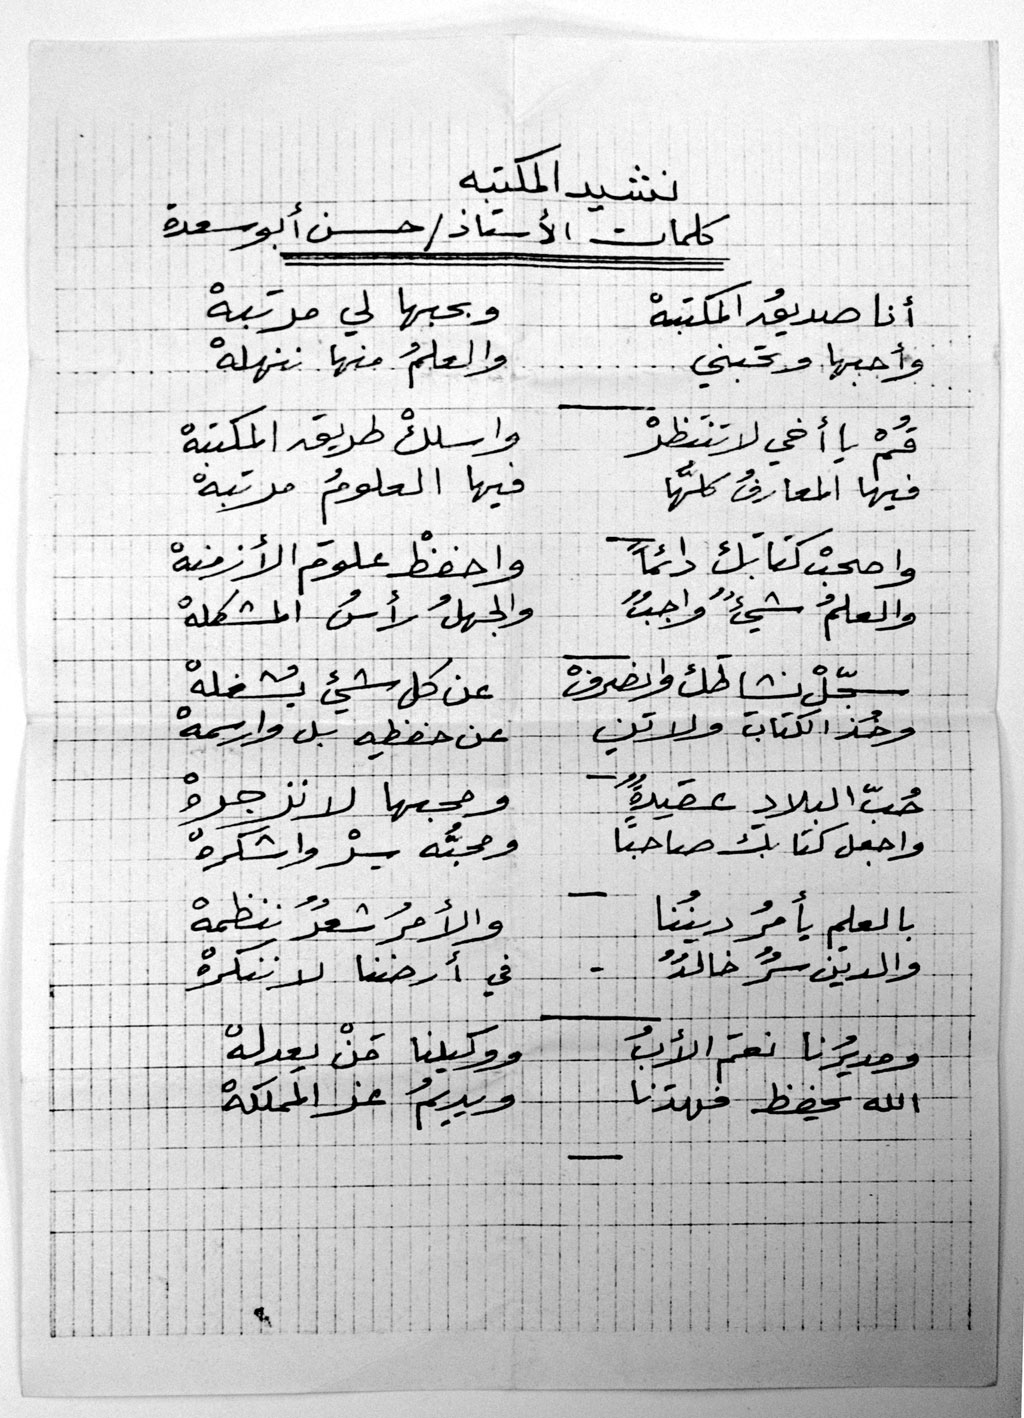 نشيد المكتبه
كلمات الأستاذ/ حسن أبو سعدة
أنا صديقُ المكتبهْ وبحبها لي مرتبهْ
وأحبها وتحبني والعلمُ منها ننهلهْ
قُمْ يا أخي لا تنتظرْ واسلكْ طريقَ المكتبهْ
فيها المعارفُ كلُّها فيها العلومُ مرتبهْ
واصحبْ كتابَكَ دائماً واحفظْ علومَ الأزمنهْ
والعلمُ شيءٌ واجبٌ والجهلُ رأسُ المشكلهْ
سجّلْ نشاطكَ وانصرفْ عن كل شيءٍ يُشغلهْ
وخُذ الكتابَ ولا تَنِي عن حفظِهِ بل وارسمهْ
حُبّ البلادِ عقيدةٌ ومحبها لا نزجرهْ
واجعل كتابك صاحبًا ومحبُّه سِرْ واشكرهْ
بالعلمِ يأمرُ دينُنا والأمرُ شعرٌ ننظمهْ
والدينُ سرٌّ خالدٌ في أرضنا لا ننكرهْ
ومديرُنا نعمَ الأبُ ووكيلنا مَنْ يعدلهْ
الله يحفظ فهدَنا ويديمُ عز المملكهْ